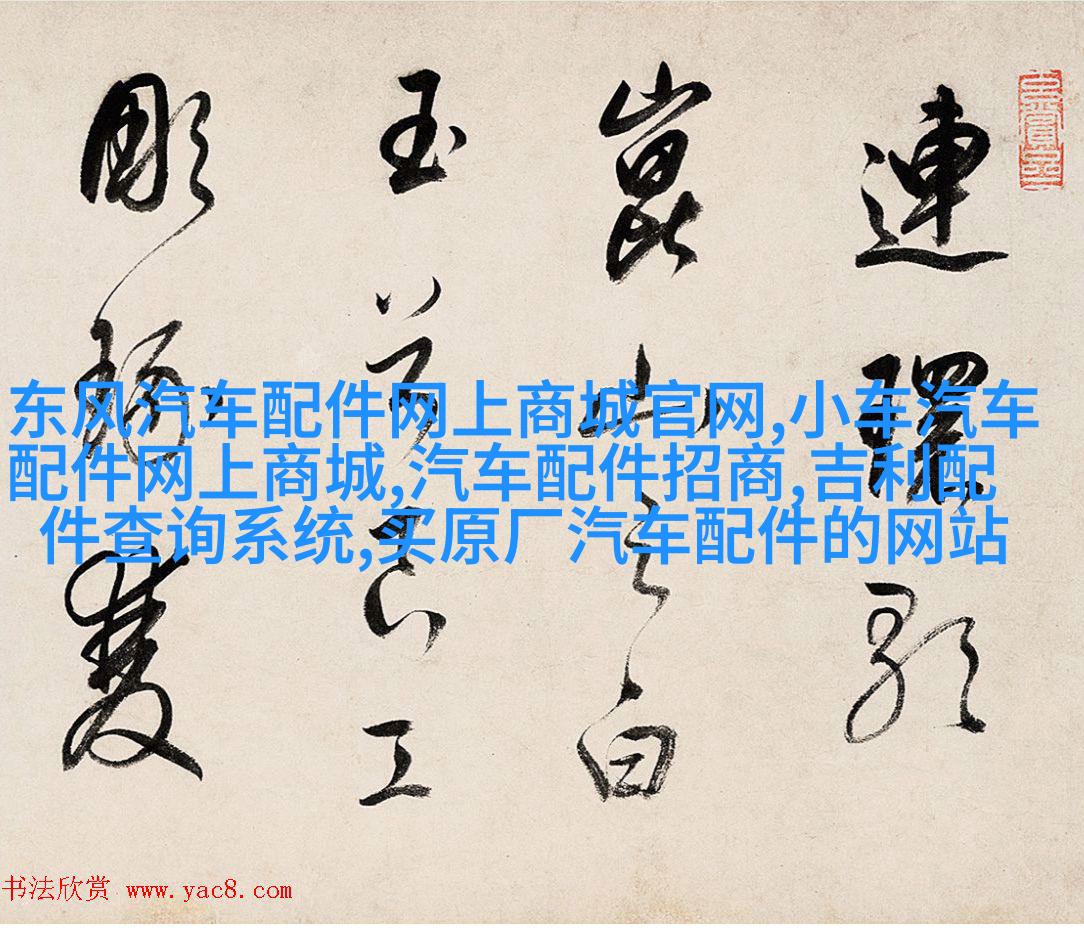 連環歌
崑山之白
玉兮良工
彫琢雙
东风汽车配件网上商城官网,小车汽车
配件网上商城,汽车配件招商,吉利配
件查询系统,买原厂汽车配件的网站
书法欣赏 www.yac8.com